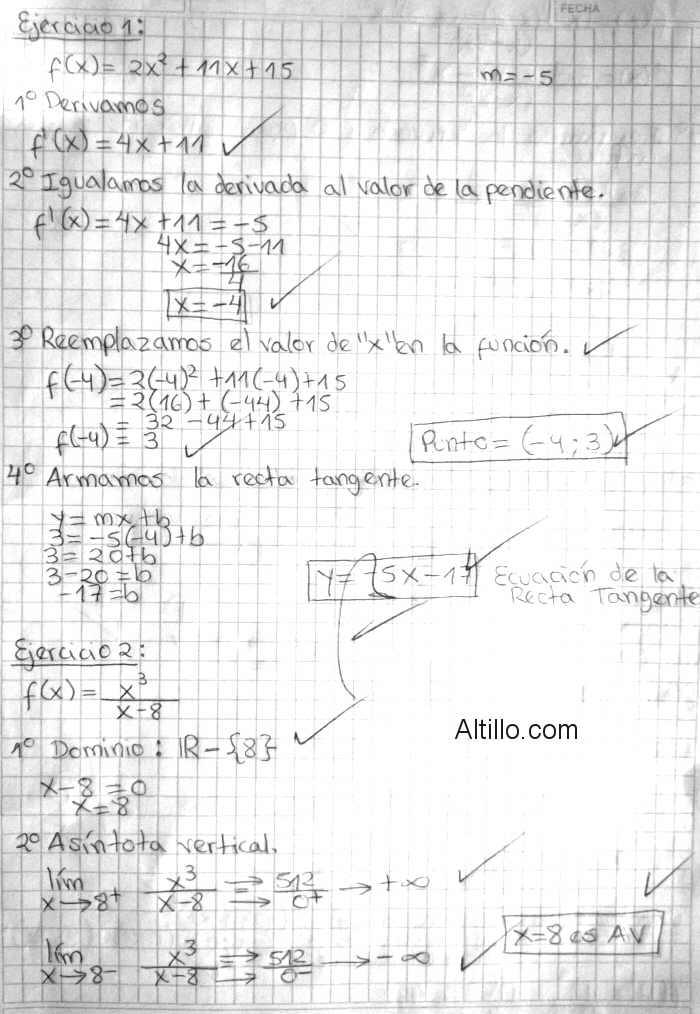 FECHA
Ejercicio 1:
f(x) = 2x² + 11x + 15 m = -5
1º Derivamos
f'(x) = 4x + 11
2º Igualamos la derivada al valor de la pendiente.
f'(x) = 4x + 11 = -5
4x = -5 - 11
x = -16/4
x = -4
3º Reemplazamos el valor de "x" en la función.
f(-4) = 2(-4)² + 11(-4) + 15
= 2(16) + (-44) + 15
= 32 - 44 + 15
f(-4) = 3
Punto = (-4; 3)
4º Armamos la recta tangente.
y = mx + b
3 = -5(-4) + b
3 = 20 + b
3 - 20 = b
-17 = b
y = -5x - 17 Ecuación de la
Recta Tangente
Ejercicio 2:
f(x) = x³/(x - 8)
Altillo.com
1º Dominio: IR - {8}
x - 8 = 0
x = 8
2º Asíntota vertical.
lím x→8⁺ x³/(x - 8) ⇒ 512/0⁺ → +∞
x = 8 es AV
lím x→8⁻ x³/(x - 8) ⇒ 512/0⁻ → -∞